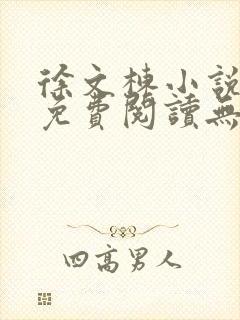 徐文棟小説
免費閱讀無
四高男人